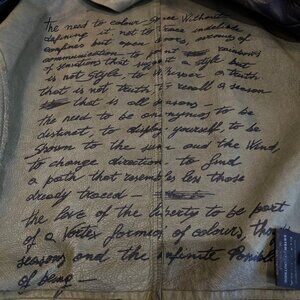 The need to colour space without
defining it, not to trace indelible
confines but open avenues of
communication - to paint rainbows
of sensations that suggest a style but
is not style, to whisper a truth
that is not truth, to recall a season
that is all seasons -
the need to be anonymous to be
distinct, to display yourself, to be
shown to the sun and the wind
to change direction, to find
a path that resembles less those
already traced -
the love of the liberty to be part
of a vortex former of colours, though
seasons and the infinite
of being -